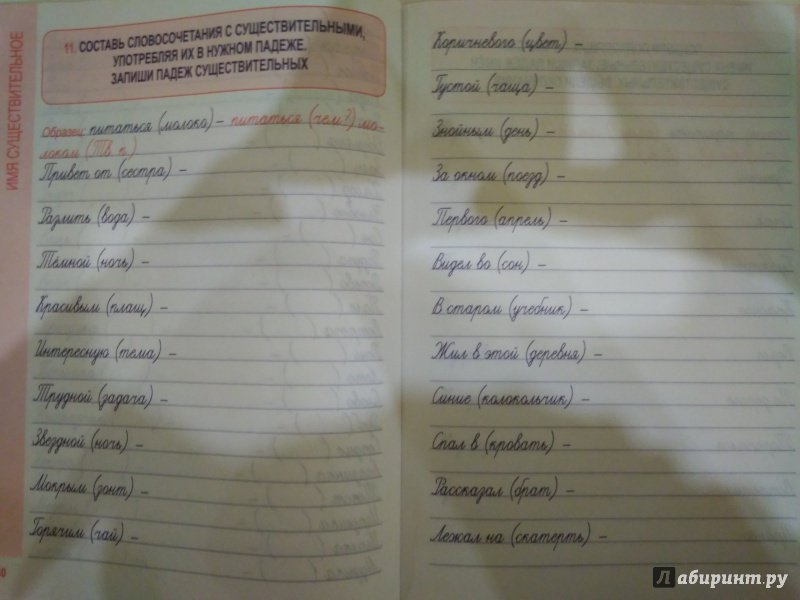 ИМЯ СУЩЕСТВИТЕЛЬНОЕ
11. СОСТАВЬ СЛОВОСОЧЕТАНИЯ С СУЩЕСТВИТЕЛЬНЫМИ,
УПОТРЕБЛЯЯ ИХ В НУЖНОМ ПАДЕЖЕ.
ЗАПИШИ ПАДЕЖ СУЩЕСТВИТЕЛЬНЫХ
Образец: питаться (молоко) – питаться (чем?) мо-
локом (Тв. п.)
Привет от (сестра) –
Разлить (вода) –
Тёмной (ночь) –
Красивым (плащ) –
Интересную (тема) –
Трудной (задача) –
Звездной (ночь) –
Мокрым (зонт) –
Горячим (чай) –
Коричневого (цвет) –
Густой (чаща) –
Знойным (день) –
За окном (поезд) –
Первого (апрель) –
Видел во (сон) –
В старом (учебник) –
Жил в этой (деревня) –
Синие (колокольчик) –
Спал в (кровать) –
Рассказал (брат) –
Лежал на (скатерть) –
Лабиринт.ру